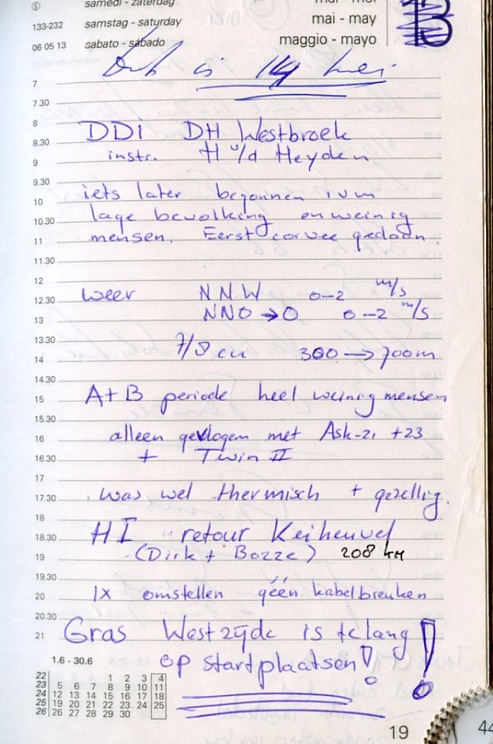 samedi - zaterdag
133-232 samstag - saturday mai - may
06 05 13 sabato - sábado maggio - mayo
13
Dit is 14 mei
7
7.30
8 DDI DH Westbroek
8.30 instr. H v/d Heyden
9
9.30 iets later begonnen ivm
10 lage bewolking en weinig
10.30 mensen. Eerst corvee gedaan.
11
11.30
12 weer NNW 0-2 m/s
12.30 NNO → O 0-2 m/s
13
13.30 7/8 cu 300 → 700m
14
14.30 A+B periode heel weinig mensen
15
15.30 alleen gevlogen met Ask-21 +23
16 + Twin II
16.30
17 was wel thermisch + gezellig.
17.30
18 HI retour Keiheuvel
18.30 (Dirk + Bozze) 208 km
19
19.30 1x omstellen géén kabelbreuken
20
20.30 Gras Westzijde is te lang
21 op startplaatsen!!
1.6 - 30.6
22 1 2 3 4
23 5 6 7 8 9 10 11
24 12 13 14 15 16 17 18
25 19 20 21 22 23 24 25
26 26 27 28 29 30
19
44